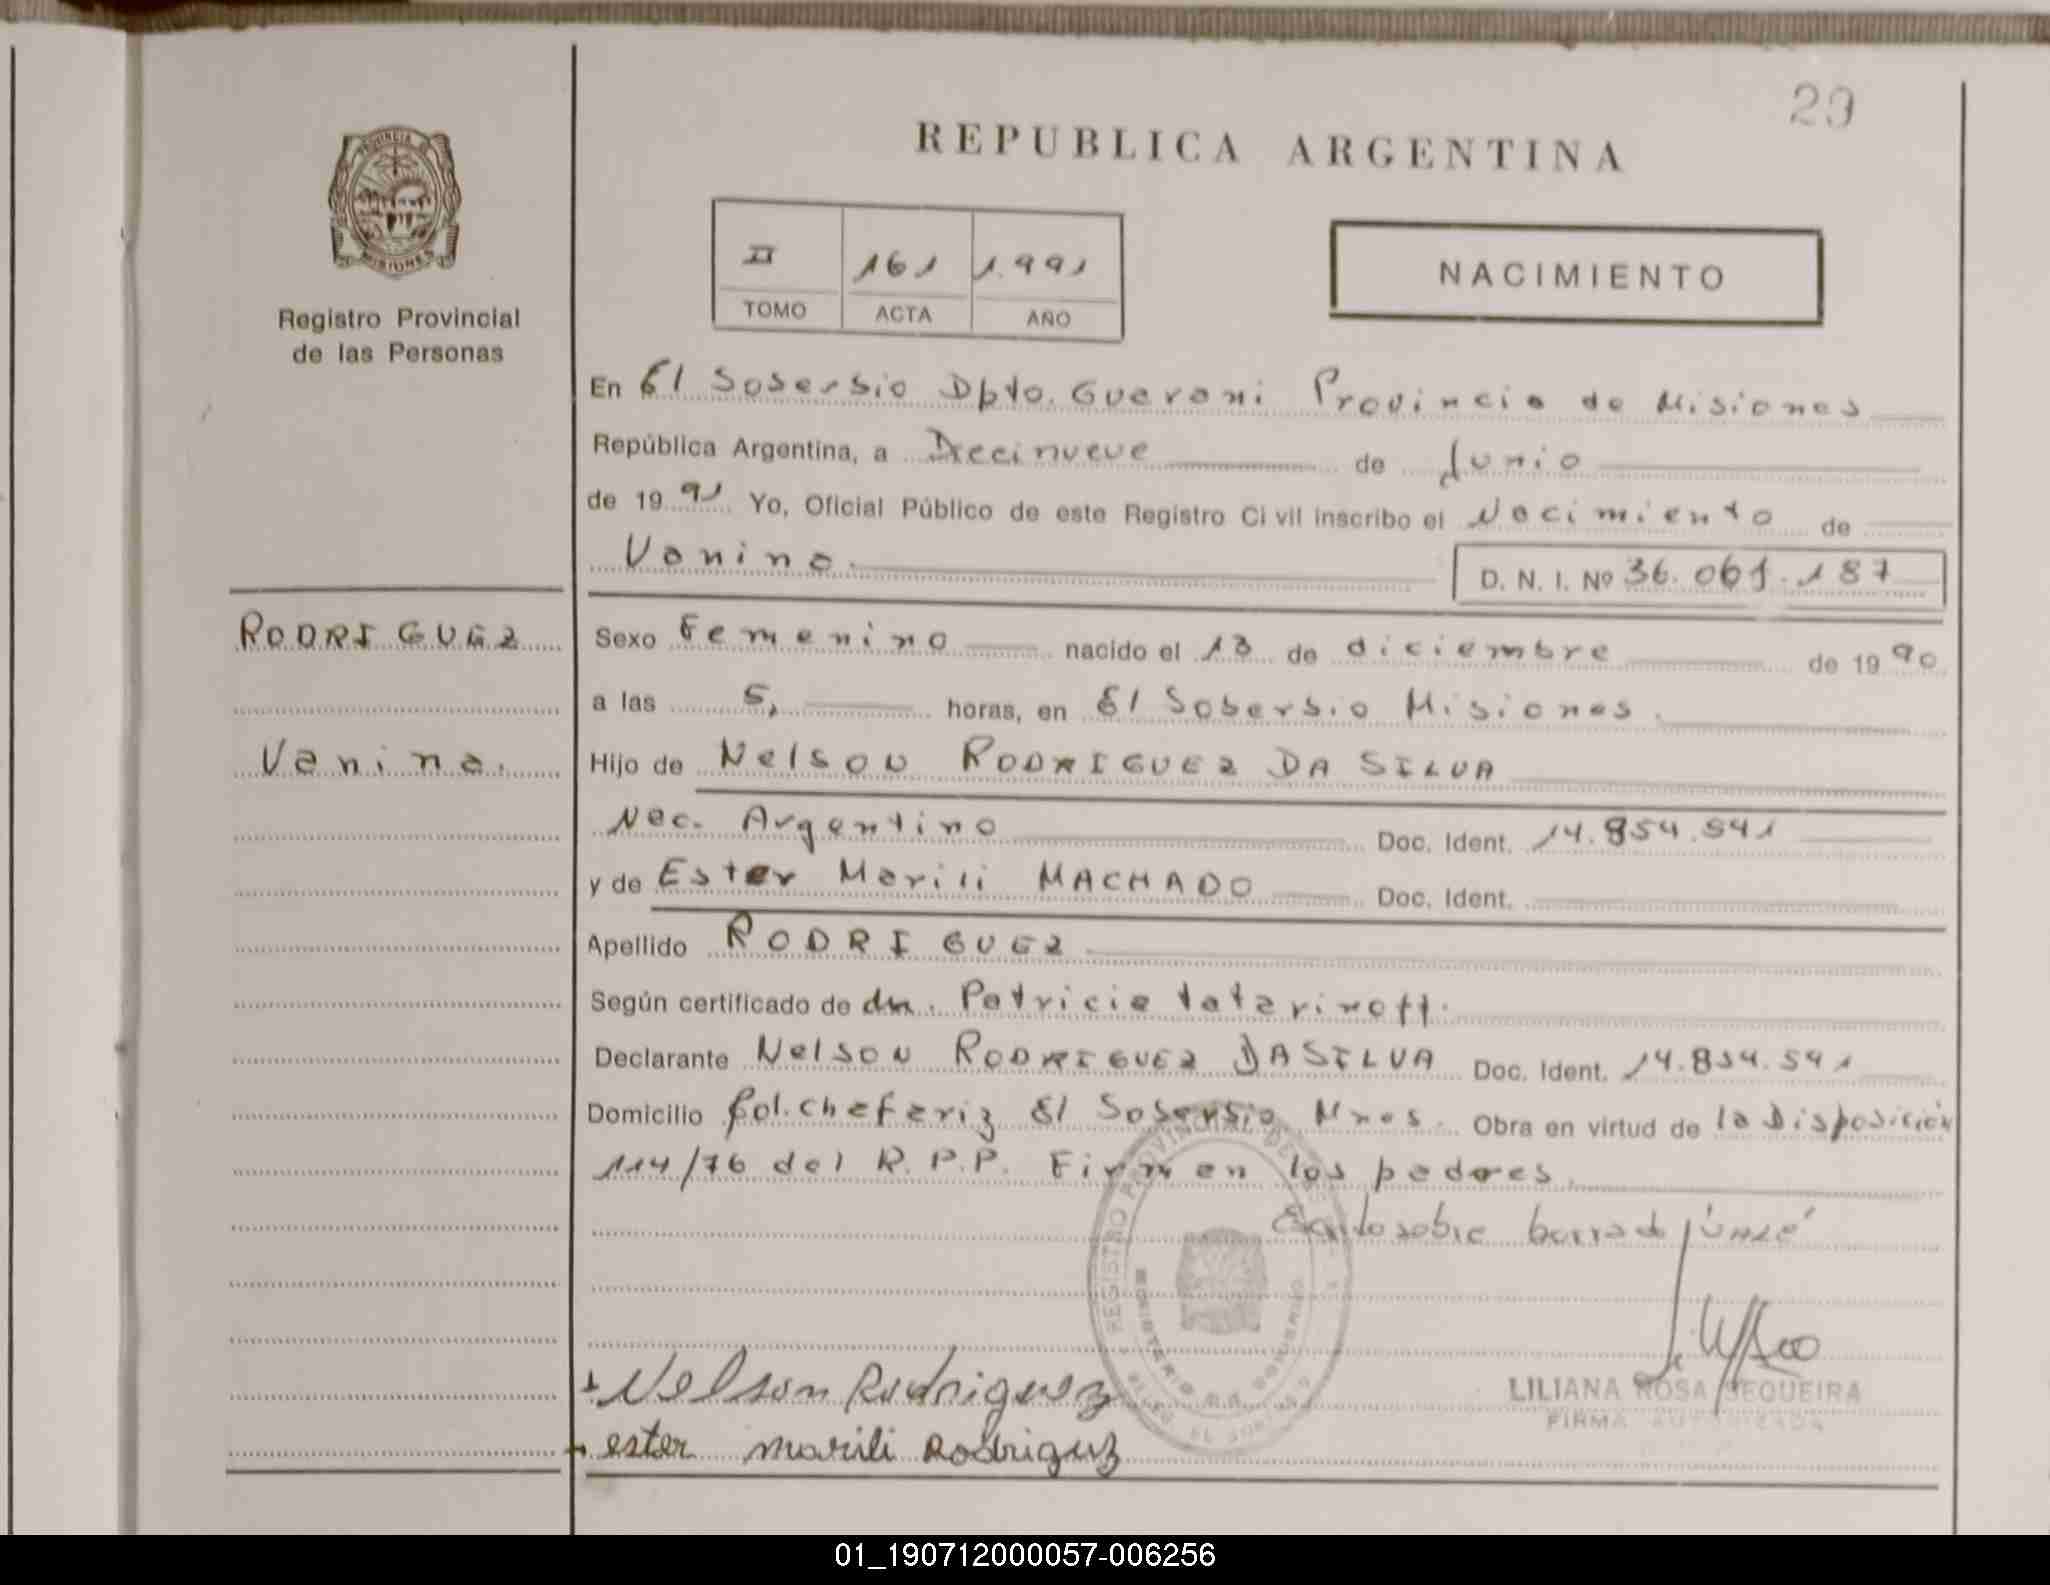 23
REPUBLICA ARGENTINA
PROVINCIA DE
MISIONES
Registro Provincial
de las Personas
II 161 1.991
TOMO ACTA AÑO
NACIMIENTO
En El Soberbio Dpto. Guarani Provincia de Misiones
República Argentina, a Diecinueve de Junio
de 1991 Yo, Oficial Público de este Registro Civil inscribo el Nacimiento de
Vanina. D. N. I. Nº 36.061.187
RODRIGUEZ
Sexo Femenino nacido el 13 de diciembre de 1990
a las 5, horas, en El Soberbio Misiones.
Vanina.
Hijo de Nelson RODRIGUEZ DA SILVA
Nac. Argentino Doc. Ident. 14.854.541
y de Ester Marili MACHADO Doc. Ident.
Apellido RODRIGUEZ
Según certificado de dra. Patricia tatarinoff.
Declarante Nelson RODRIGUEZ DA SILVA Doc. Ident. 14.854.541
Domicilio Col. Chafariz El Soberbio Mnes. Obra en virtud de la Disposición
114/76 del R.P.P. Firman los padres.
sobre borrado
REGISTRO PROVINCIAL DE
MINISTERIO DE GOBIERNO
Nelson Rodriguez
LILIANA ROSA SEQUEIRA
FIRMA AUTORIZADA
ester marili Rodriguez
01_190712000057-006256